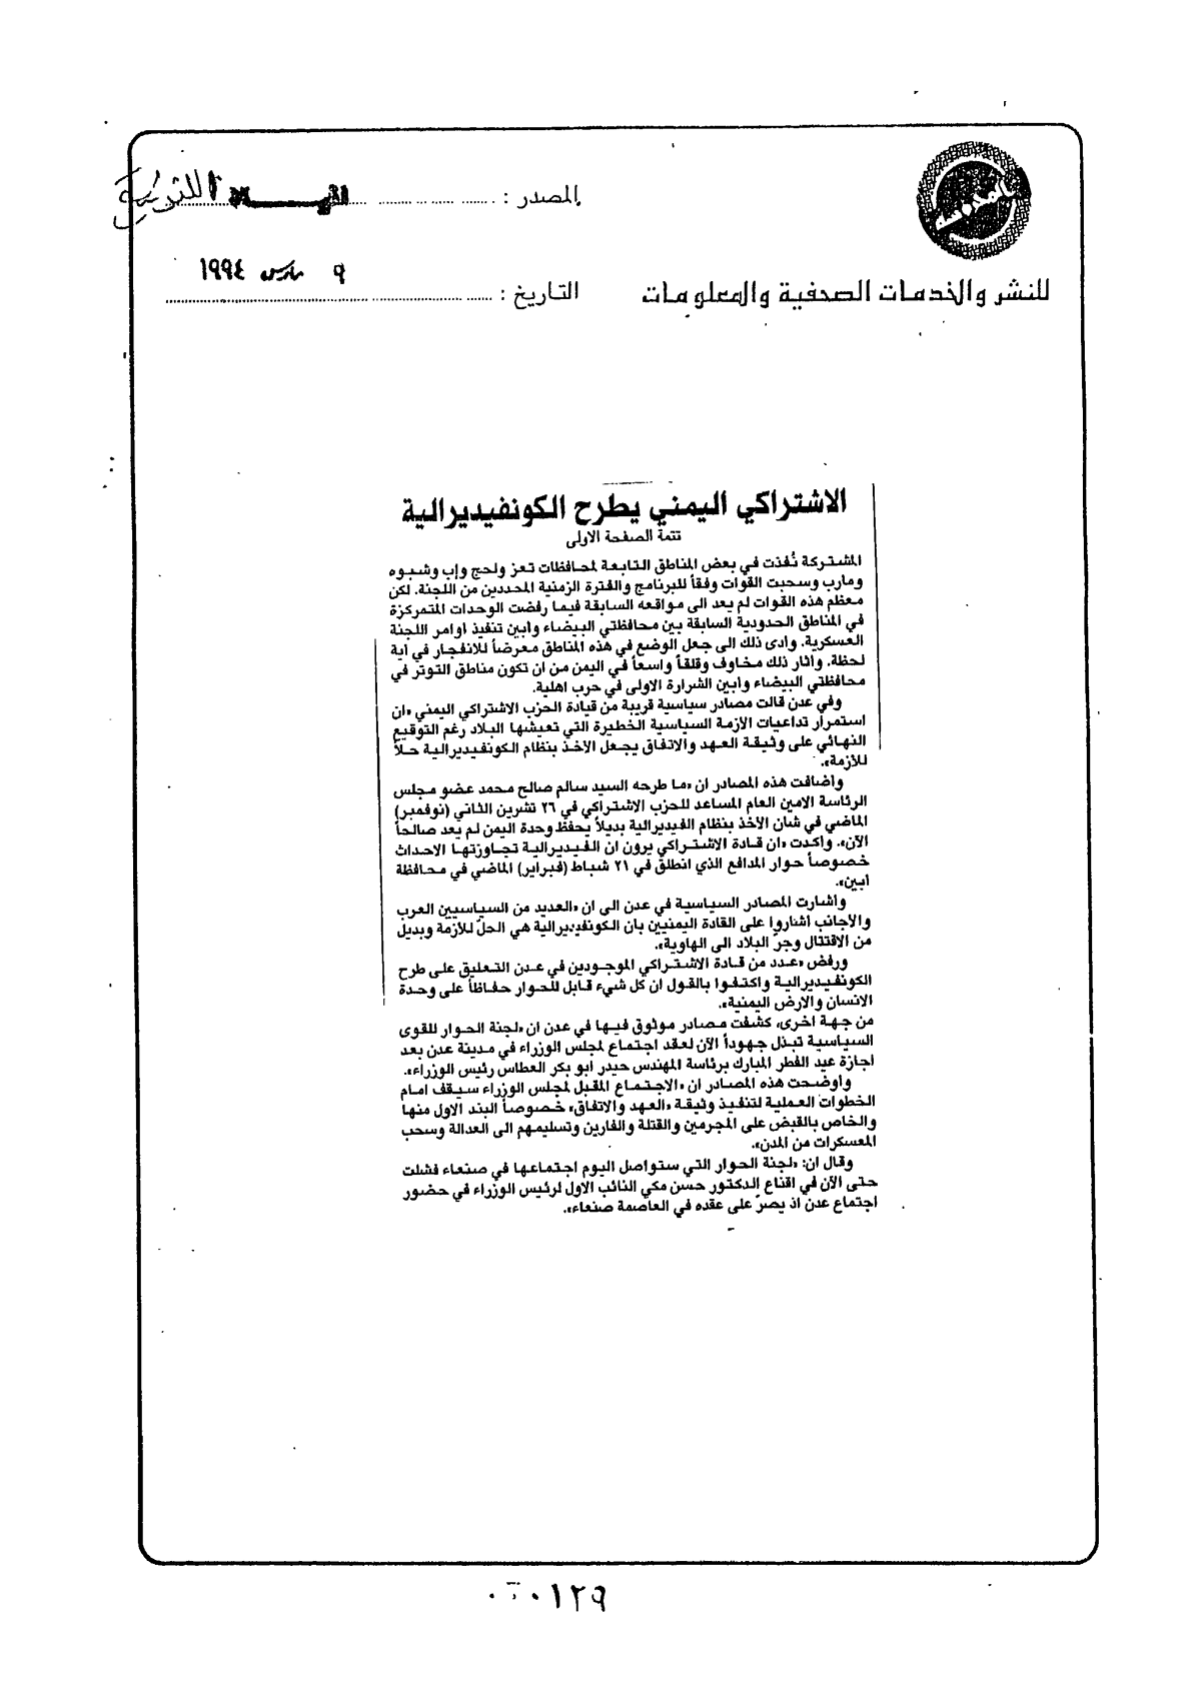 المصدر :
التاريخ : ٩ مارس ١٩٩٤
للنشر والخدمات الصحفية والمعلومات
الاشتراكي اليمني يطرح الكونفيديرالية
تتمة الصفحة الاولى
المشتركة نُفذت في بعض المناطق التابعة لمحافظات تعز ولحج وإب وشبوه
ومارب وسحبت القوات وفقاً للبرنامج والفترة الزمنية المحددين من اللجنة. لكن
معظم هذه القوات لم يعد الى مواقعه السابقة فيما رفضت الوحدات المتمركزة
في المناطق الحدودية السابقة بين محافظتي البيضاء وابين تنفيذ اوامر اللجنة
العسكرية. وادى ذلك الى جعل الوضع في هذه المناطق معرضاً للانفجار في اية
لحظة. واثار ذلك مخاوف وقلقاً واسعاً في اليمن من ان تكون مناطق التوتر في
محافظتي البيضاء وابين الشرارة الاولى في حرب اهلية.
وفي عدن قالت مصادر سياسية قريبة من قيادة الحزب الاشتراكي اليمني «ان
استمرار تداعيات الازمة السياسية الخطيرة التي تعيشها البلاد رغم التوقيع
النهائي على وثيقة العهد والاتفاق يجعل الاخذ بنظام الكونفيديرالية حلاً
للازمة».
واضافت هذه المصادر ان «ما طرحه السيد سالم صالح محمد عضو مجلس
الرئاسة الامين العام المساعد للحزب الاشتراكي في ٢٦ تشرين الثاني (نوفمبر)
الماضي في شان الاخذ بنظام الفيديرالية بديلاً يحفظ وحدة اليمن لم يعد صالحاً
الآن». واكدت «ان قادة الاشتراكي يرون ان الفيديرالية تجاوزتها الاحداث
خصوصاً حوار المدافع الذي انطلق في ٢١ شباط (فبراير) الماضي في محافظة
ابين».
واشارت المصادر السياسية في عدن الى ان «العديد من السياسيين العرب
والاجانب اشاروا على القادة اليمنيين بان الكونفيديرالية هي الحلّ للازمة وبديل
من الاقتتال وجرّ البلاد الى الهاوية».
ورفض «عدد من قادة الاشتراكي الموجودين في عدن التعليق على طرح
الكونفيديرالية واكتفوا بالقول ان كل شيء قابل للحوار حفاظاً على وحدة
الانسان والارض اليمنية».
من جهة اخرى، كشفت مصادر موثوق فيها في عدن ان «لجنة الحوار للقوى
السياسية تبذل جهوداً الآن لعقد اجتماع لمجلس الوزراء في مدينة عدن بعد
اجازة عيد الفطر المبارك برئاسة المهندس حيدر ابو بكر العطاس رئيس الوزراء».
واوضحت هذه المصادر ان «الاجتماع المقبل لمجلس الوزراء سيقف امام
الخطوات العملية لتنفيذ وثيقة «العهد والاتفاق» خصوصاً البند الاول منها
والخاص بالقبض على المجرمين والقتلة والفارين وتسليمهم الى العدالة وسحب
المعسكرات من المدن».
وقال ان: «لجنة الحوار التي ستواصل اليوم اجتماعها في صنعاء فشلت
حتى الآن في اقناع الدكتور حسن مكي النائب الاول لرئيس الوزراء في حضور
اجتماع عدن اذ يصرّ على عقده في العاصمة صنعاء».